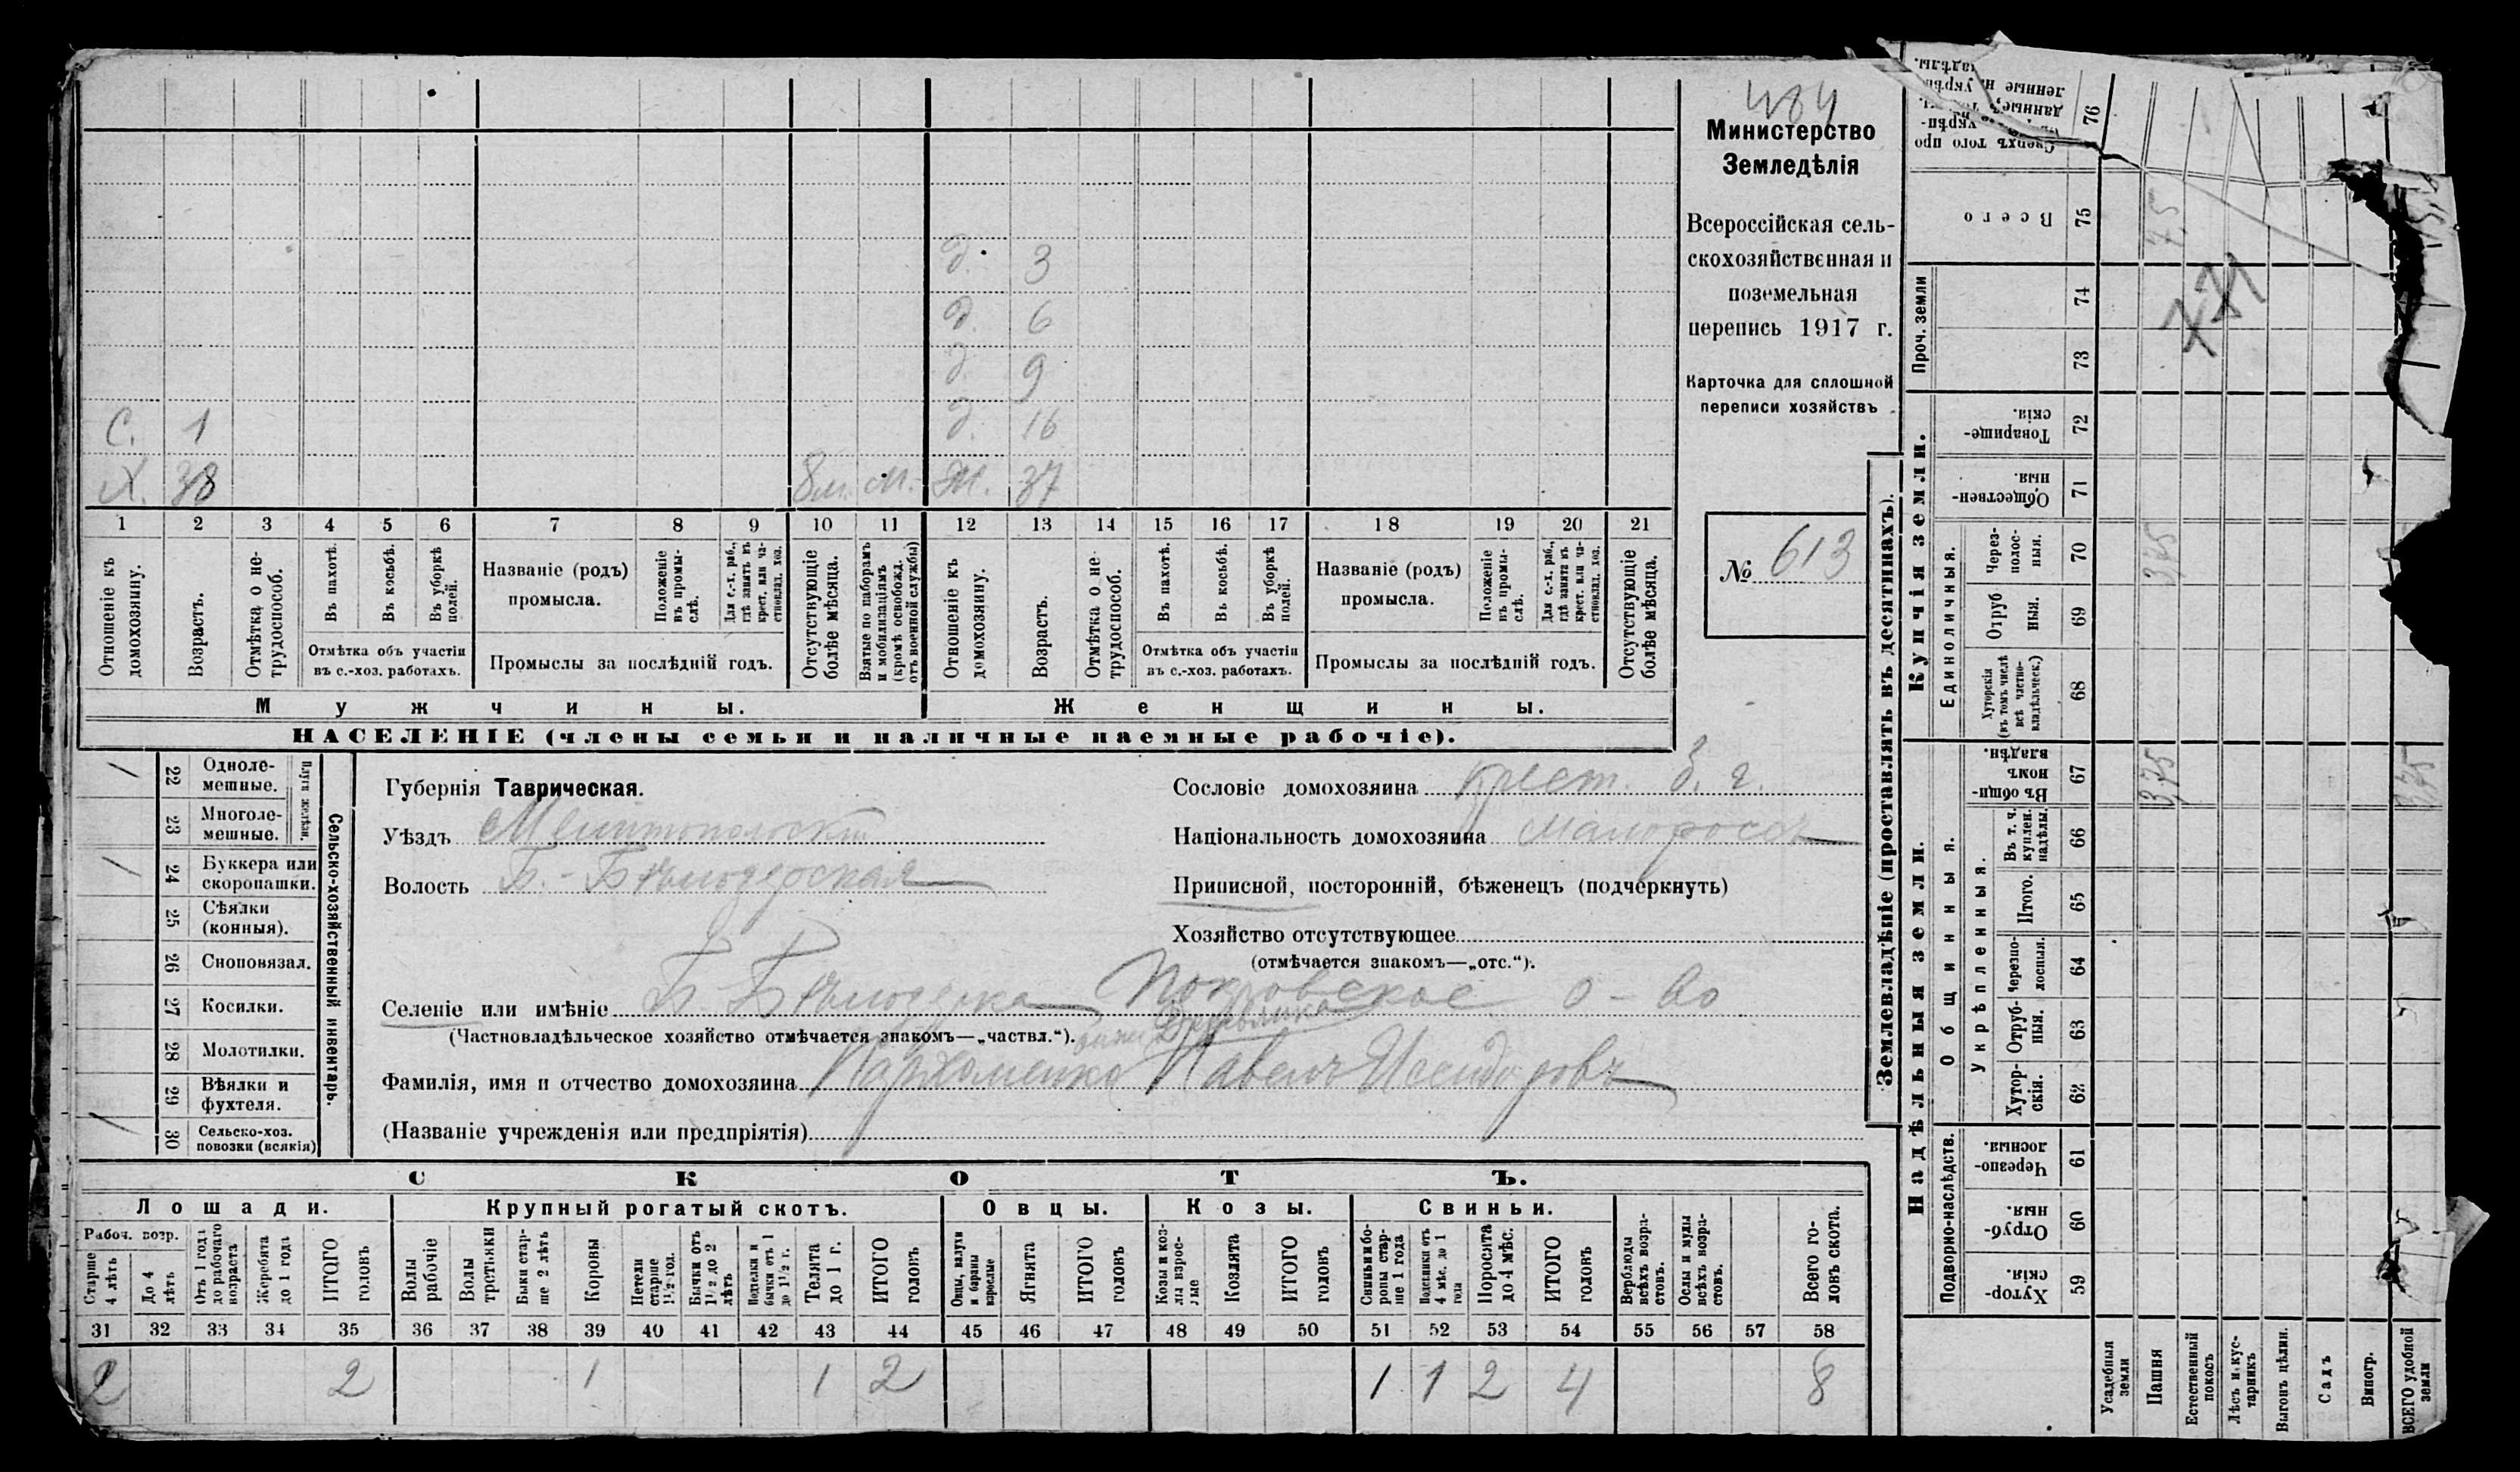 484
Министерство
Земледѣлія
Всероссійская сель-
скохозяйственная и
поземельная
перепись 1917 г.
Карточка для сплошной
переписи хозяйствъ
№ 613
д. 3
д. 6
д. 9
С. 1 д. 16
Х. 38 8м. м. Ж. 37
1 2 3 4 5 6 7 8 9 10 11 12 13 14 15 16 17 18 19 20 21
Отношеніе къ домохозяину.
Возрастъ.
Отмѣтка о не-трудоспособ.
Въ пахотѣ.
Въ косьбѣ.
Въ уборкѣ полей.
Отмѣтка объ участіи
въ с.-хоз. работахъ.
Названіе (родъ)
промысла.
Положеніе въ промы-слѣ.
Для с.-х. раб., гдѣ занятъ въ крест. или ча-стновлад. хоз.
Промыслы за послѣдній годъ.
Отсутствующіе болѣе мѣсяца.
Взятые по наборамъ и мобилизаціямъ (кромѣ освобожд. отъ военной службы)
Отношеніе къ домохозяину.
Возрастъ.
Отмѣтка о не трудоспособ.
Въ пахотѣ.
Въ косьбѣ.
Въ уборкѣ полей.
Отмѣтка объ участіи
въ с.-хоз. работахъ.
Названіе (родъ)
промысла.
Положеніе въ промы-слѣ.
Для с.-х. раб., гдѣ занята въ крест. или ча-стновлад. хоз.
Промыслы за послѣдній годъ.
Отсутствующіе болѣе мѣсяца.
Мужчины. Женщины.
НАСЕЛЕНІЕ (члены семьи и наличные наемные рабочіе).
/ 22 Одноле-мешные.
23 Многоле-мешные.
Плуги желѣзн.
/ 24 Буккера или скоропашки.
25 Сѣялки (конныя).
26 Сноповязал.
27 Косилки.
28 Молотилки.
29 Вѣялки и фухтеля.
/ 30 Сельско-хоз. повозки (всякія)
Сельско-хозяйственный инвентарь.
Губернія Таврическая.
Уѣздъ Мелитопольскій
Волость Б.-Бѣлозерская
Сословіе домохозяина крест.
Національность домохозяина малороссъ
Приписной, посторонній, бѣженецъ (подчеркнуть)
Хозяйство отсутствующее
(отмѣчается знакомъ—„отс.“).
Селеніе или имѣніе Б.-Бѣлозерка Покровское о-во
(Частновладѣльческое хозяйство отмѣчается знакомъ—„частвл.“).
Фамилія, имя и отчество домохозяина Пархоменко Павелъ Исидоровъ
(Названіе учрежденія или предпріятія)
СКОТЪ.
Лошади. Крупный рогатый скотъ. Овцы. Козы. Свиньи.
Рабоч. возр.
Старше 4 лѣтъ
До 4 лѣтъ
Отъ 1 года до рабочаго возраста
Жеребята до 1 года
ИТОГО головъ
Волы рабочіе
Волы третьяки
Быки стар-ше 2 лѣтъ
Коровы
Нетели старше 1½ год.
Бычки отъ 1½ до 2 лѣтъ
Подтелки и бычки отъ 1 до 1½ г.
Телята до 1 г.
ИТОГО головъ
Овцы, валухи и бараны взрослые
Ягнята
ИТОГО головъ
Козы и коз-лы взрос-лые
Козлята
ИТОГО головъ
Свиньи и бо-ровы стар-ше 1 года
Подсвинки отъ 4 мѣс. до 1 года
Поросята до 4 мѣс.
ИТОГО головъ
Верблюды всѣхъ возра-стовъ.
Ослы и мулы всѣхъ возра-стовъ.
Всего го-ловъ скота.
31 32 33 34 35 36 37 38 39 40 41 42 43 44 45 46 47 48 49 50 51 52 53 54 55 56 57 58
2 2 1 1 2 1 1 2 4 8
Землевладѣніе (проставлять въ десятинахъ).
Надѣльныя земли. Купчія земли.
Подворно-наслѣдств.
Общинныя.
Укрѣпленныя.
Единоличныя.
Проч. земли
Хутор-скія. 59
Отруб-ныя. 60
Черезпо-лосныя. 61
Хутор-скія. 62
Отруб-ныя. 63
Черезпо-лосныя. 64
Итого. 65
Въ т. ч. куплен. надѣлы. 66
Въ общин-номъ владѣн. 67
Хуторскія (въ томъ числѣ всѣ частно-владѣльческ.) 68
Отруб ныя. 69
Через-полос-ныя. 70
Обществен-ныя. 71
Товарище-скія. 72
73
74
Всего 75
Сверхъ того про
76
Усадебныя земли
Пашня 3,75 3,75 7,5
Естественный покосъ
Лѣсъ и кус-тарникъ
Выгонъ цѣлин.
Садъ
Виногр.
ВСЕГО удобной земли 3,75